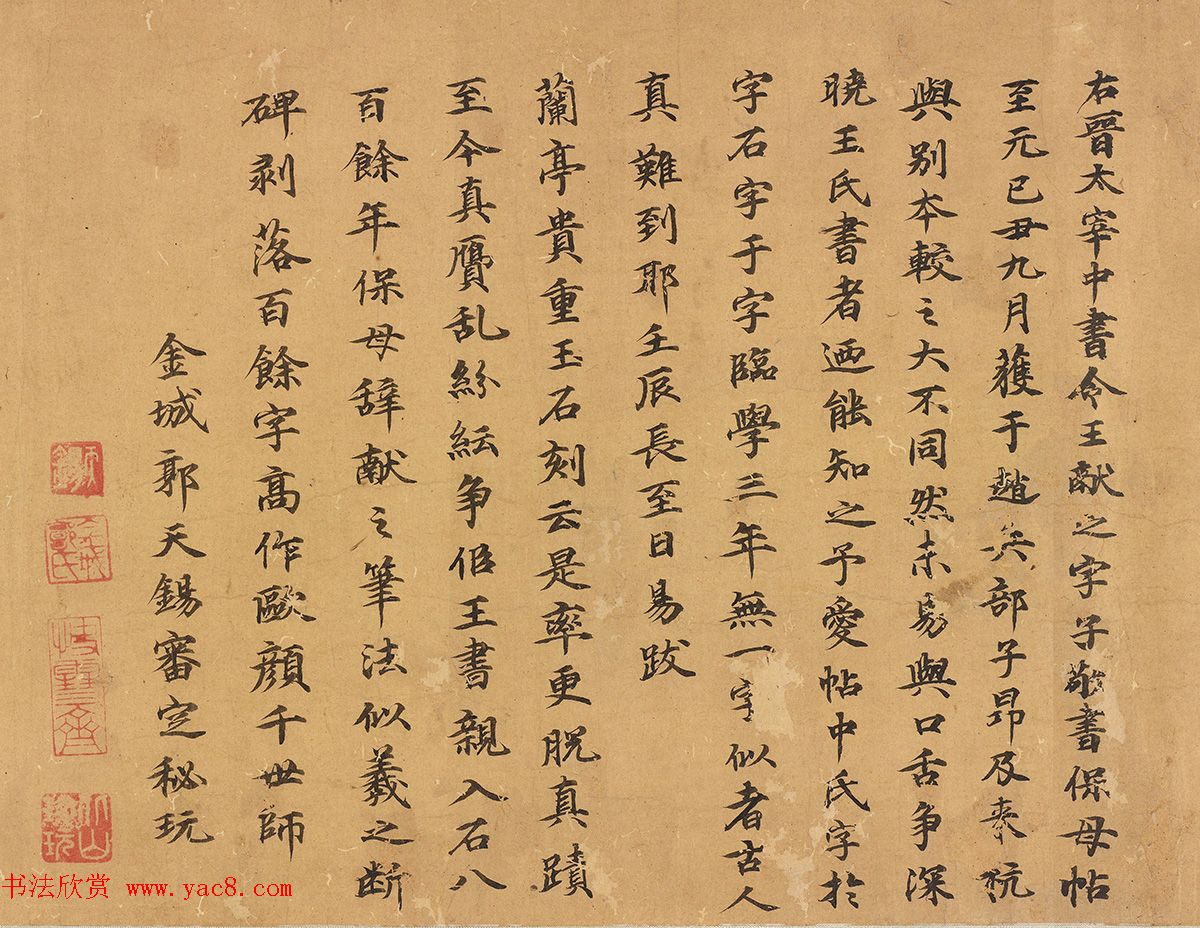 右晉太宰中書令王献之字子敬書保母帖
至元己丑九月獲于趙兵部子昂及来杭
與别本較之大不同然未易與口舌争深
曉王氏書者迺能知之予愛帖中氏字於
字石字于字臨學三年無一字似者古人
真難到耶壬辰長至日易跋
蘭亭貴重玉石刻云是率更脱真蹟
至今真贗乱紛紜争佀王書親入石八
百餘年保母辞献之筆法似羲之断
碑剥落百餘字髙作歐顔千世師
金城郭天錫審定秘玩
天錫
金城郭氏
書法欣赏 www.yac8.com